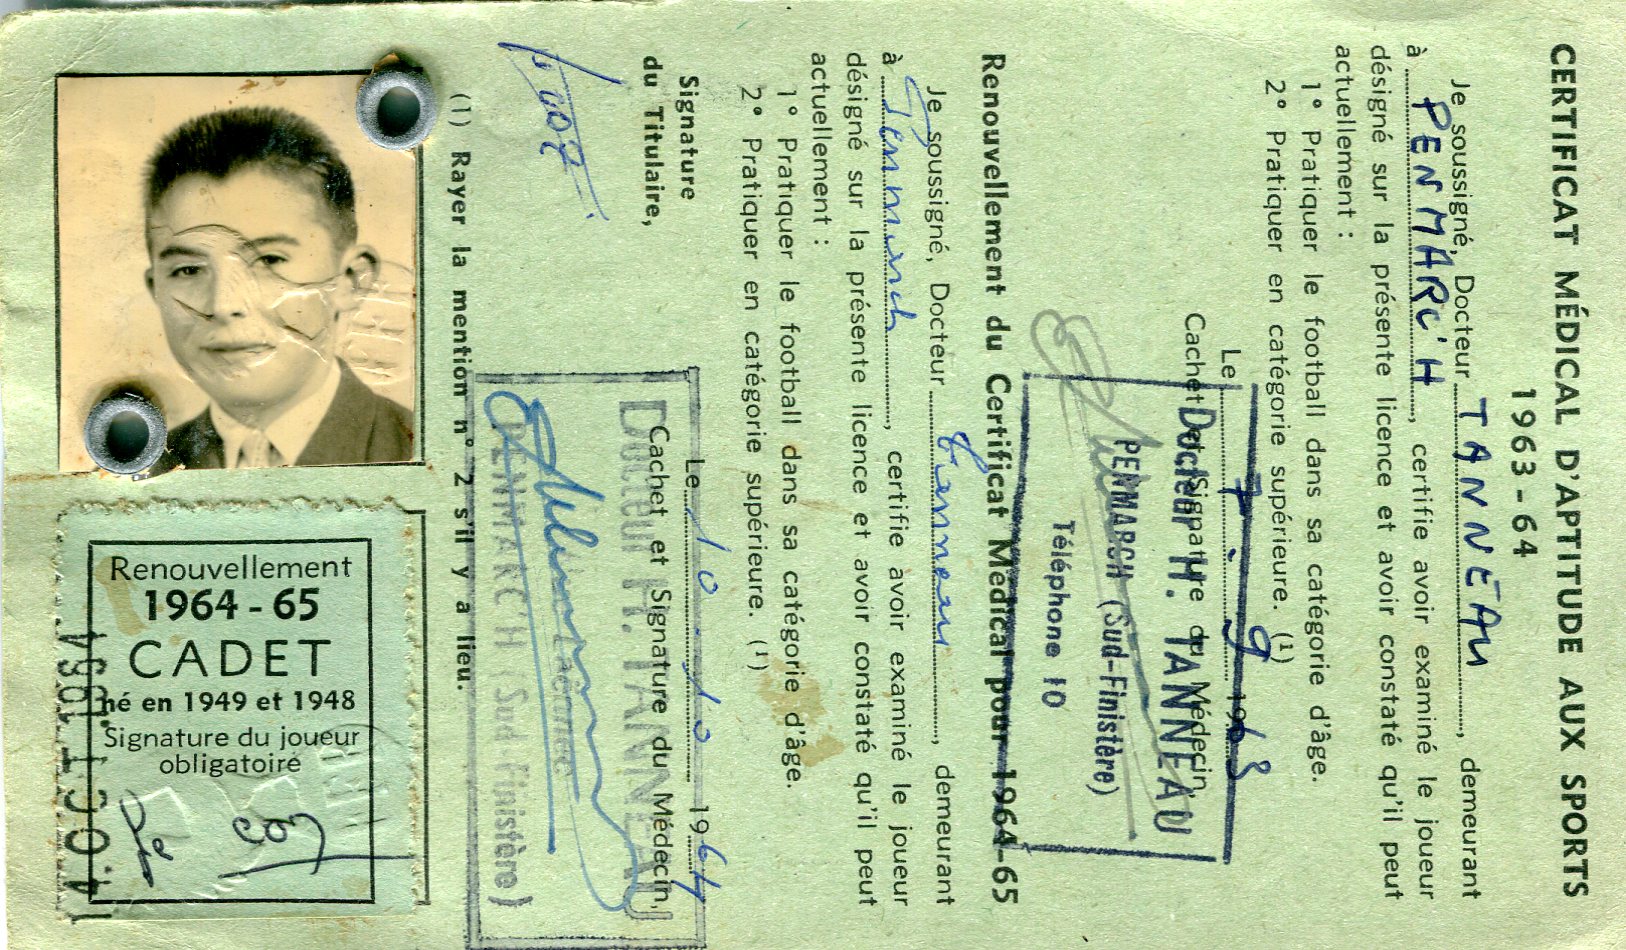 CERTIFICAT MÉDICAL D'APTITUDE AUX SPORTS
1963 - 64
Je soussigné, Docteur TANNEAU, demeurant
à PENMARC'H, certifie avoir examiné le joueur
désigné sur la présente licence et avoir constaté qu'il peut
actuellement :
1° Pratiquer le football dans sa catégorie d'âge.
2° Pratiquer en catégorie supérieure. (1)
Le 7.9 1963
Cachet et Signature du Médecin,
Docteur H. TANNEAU
PENMARCH (Sud-Finistère)
Téléphone 10
Renouvellement du Certificat Médical pour 1964-65
Je soussigné, Docteur Tanneau, demeurant
à Penmarch, certifie avoir examiné le joueur
désigné sur la présente licence et avoir constaté qu'il peut
actuellement :
1° Pratiquer le football dans sa catégorie d'âge.
2° Pratiquer en catégorie supérieure. (1)
Le 10.10 1964
Signature
du Titulaire,
Cachet et Signature du Médecin,
Docteur H. TANNEAU
PENMARC'H (Sud-Finistère)
(1) Rayer la mention n° 2 s'il y a lieu.
Renouvellement
1964 - 65
CADET
né en 1949 et 1948
Signature du joueur
obligatoire
OCT 1964